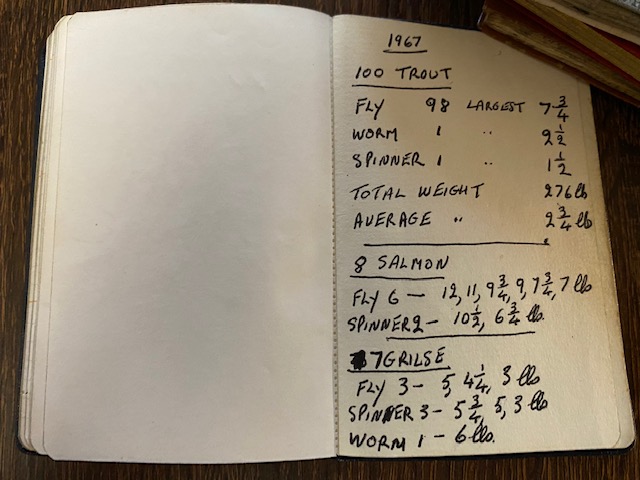 1967
100 TROUT
FLY 98 LARGEST 7 3/4
WORM 1 " 2 1/2
SPINNER 1 " 1 1/2
TOTAL WEIGHT 276 lb
AVERAGE " 2 3/4 lb
8 SALMON
FLY 6 — 12, 11, 9 3/4, 9, 7 3/4, 7 lb
SPINNER 2 — 10 1/2, 6 3/4 lb.
7 GRILSE
FLY 3 — 5, 4 1/4, 3 lb
SPINNER 3 — 5 3/4, 5, 3 lb
WORM 1 — 6 lb.